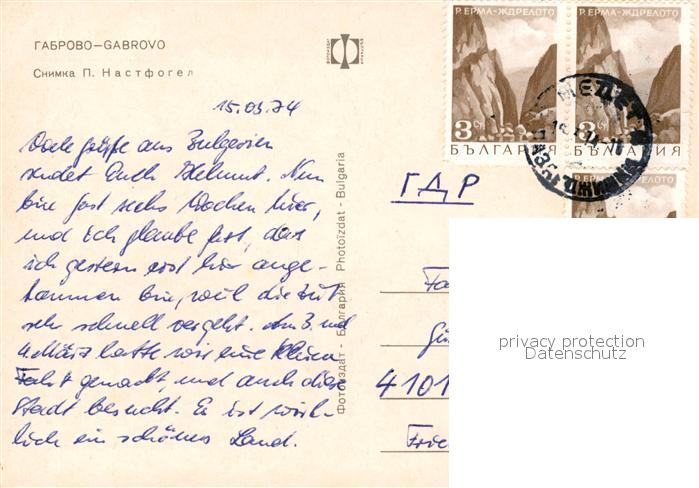 ГАБРОВО—GABROVO
Снимка П. Настфогел
15.03.74
Viele Grüße aus Bulgarien
sendet Euch Helmut. Nun
bin fast sechs Wochen hier,
und ich glaube fest, das
ich gestern erst hier ange-
kommen bin, weil die Zeit
sehr schnell vergeht. Am 3. und
4. März hatte wir eine kleine
Fahrt gemacht, und auch diese
Stadt besucht. Es ist wirk-
lich ein schönes Land.
Фотоиздат - България Photoizdat - Bulgaria
Р. ЕРМА-ЖДРЕЛОТО
3 СТ
БЪЛГАРИЯ
Р. ЕРМА-ЖДРЕЛОТО
3 СТ
БЪЛГАРИЯ
Р. ЕРМА-ЖДРЕЛОТО
МЕДЕТ
ГДР
4101
privacy protection
Datenschutz